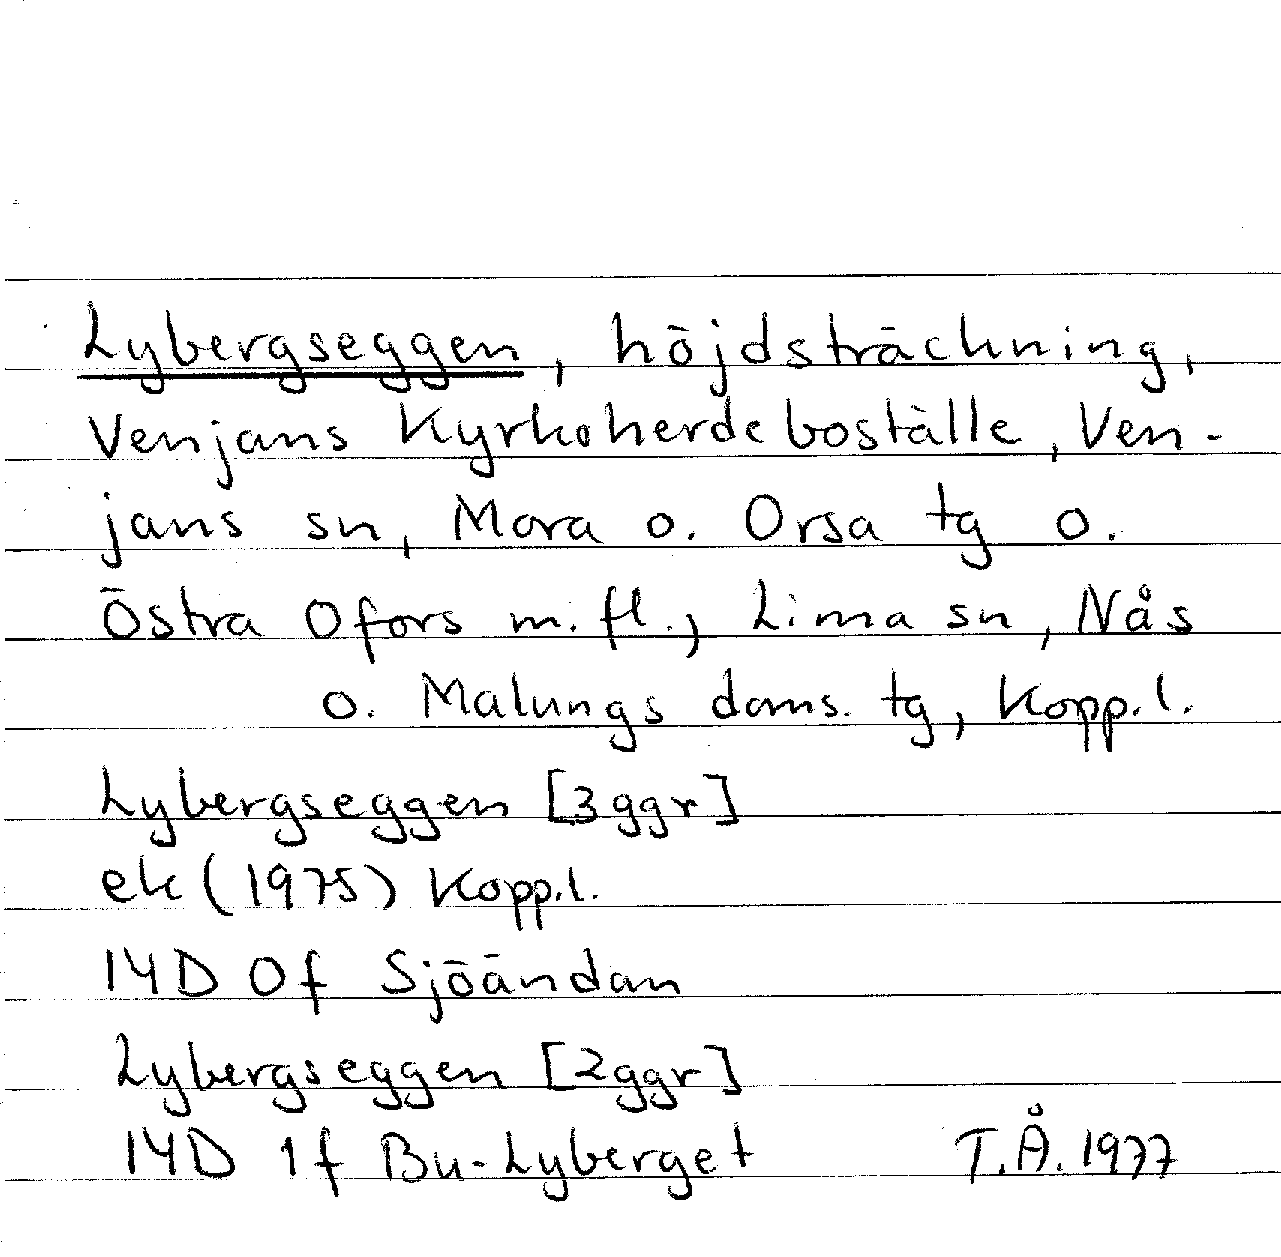 Lybergseggen, höjdsträckning,
Venjans Kyrkoherdeboställe, Ven-
jans sn, Mora o. Orsa tg o.
Östra Ofors m.fl., Lima sn, Nås
o. Malungs doms. tg, Kopp.l.
Lybergseggen [3 ggr]
ek (1975) Kopp.l.
14D 0f Sjöändan
Lybergseggen [2 ggr]
14D 1f Bu-Lyberget T.Å. 1977